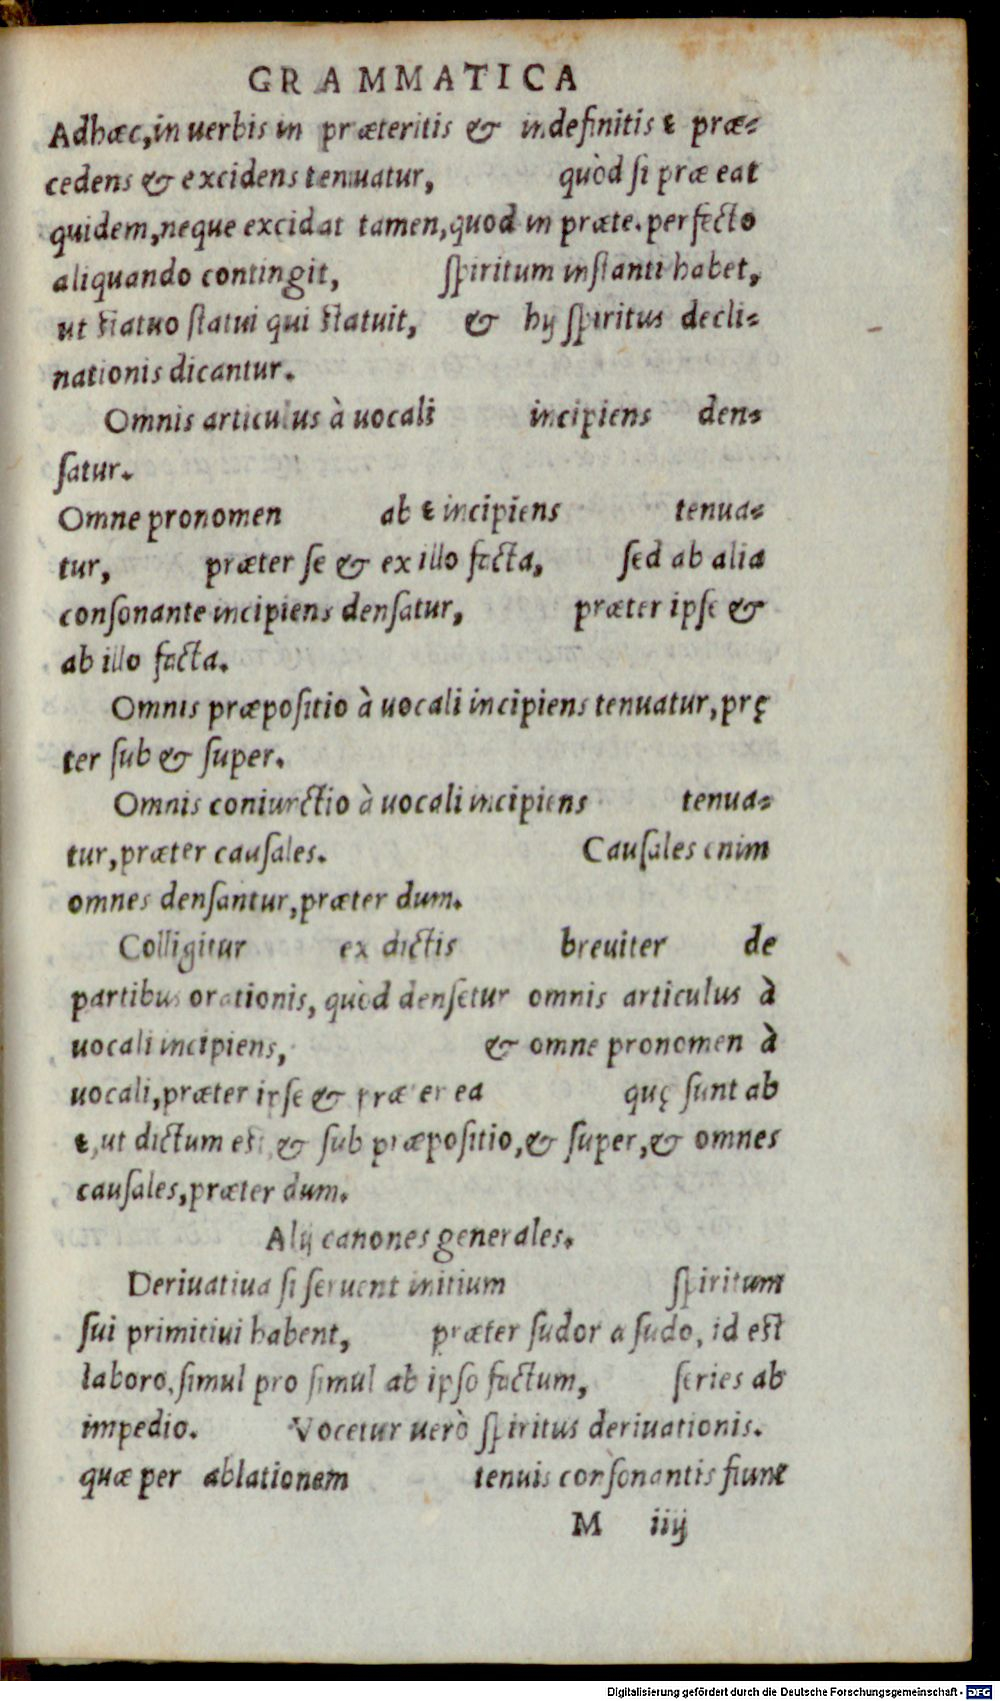 GRAMMATICA
Adhæc, in uerbis in præteritis & indefinitis ε præ-
cedens & excidens tenuatur, quòd si præ eat
quidem, neque excidat tamen, quod in præte. perfecto
aliquando contingit, spiritum instanti habet,
ut statuo statui qui statuit, & hij spiritus decli-
nationis dicantur.
Omnis articulus à uocali incipiens den-
satur.
Omne pronomen ab ε incipiens tenua-
tur, præter se & ex illo facta, sed ab alia
consonante incipiens densatur, præter ipse &
ab illo facta.
Omnis præpositio à uocali incipiens tenuatur, prę
ter sub & super.
Omnis coniunctio à uocali incipiens tenua-
tur, præter causales. Causales enim
omnes densantur, præter dum.
Colligitur ex dictis breuiter de
partibus orationis, quòd densetur omnis articulus à
uocali incipiens, & omne pronomen à
uocali, præter ipse & præter ea quę sunt ab
ε, ut dictum est, & sub præpositio, & super, & omnes
causales, præter dum.
Alij canones generales.
Deriuatiua si seruent initium spiritum
sui primitiui habent, præter sudor a sudo, id est
laboro, simul pro simul ab ipso factum, series ab
impedio. Vocetur uerò spiritus deriuationis.
quæ per ablationem tenuis consonantis fiunt
M iiij
Digitalisierung gefördert durch die Deutsche Forschungsgemeinschaft - DFG